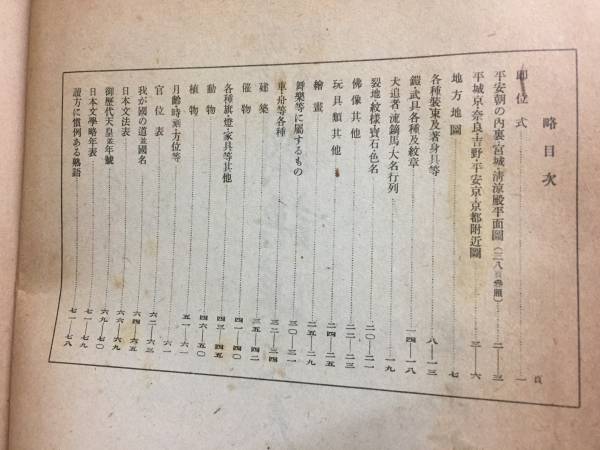 略目次
頁
即位式……一
平安朝の內裏・宮城・淸涼殿平面圖(三八頁參照)……二—三
平城京・奈良・吉野・平安京・京都附近圖……三—六
地方地圖……七
各種裝束及著身具等……八—一三
鎧・武具各種及紋章……一四—一八
犬追者・流鏑馬・大名行列……一九
裂地・紋樣・寶石・色名……二〇—二一
佛像其他……二二—二三
玩具類其他……二四—二五
繪畫……二五—二九
舞樂等に屬するもの……三〇—三一
車・舟等各種……三二—三四
建築……三五—四二
催物……四一—四〇
各種旗・燈・家具等其他……四三—四五
動物……四六—五〇
植物……五一—六一
月齡・時刻・方位等……六一
官位表……六二—六三
我が國の道並國名……六四—六五
日本文法表……六六—六九
御歷代天皇並年號……六九—七〇
日本文學略年表……七一—七九
讀方に慣例ある熟語……七一—七八